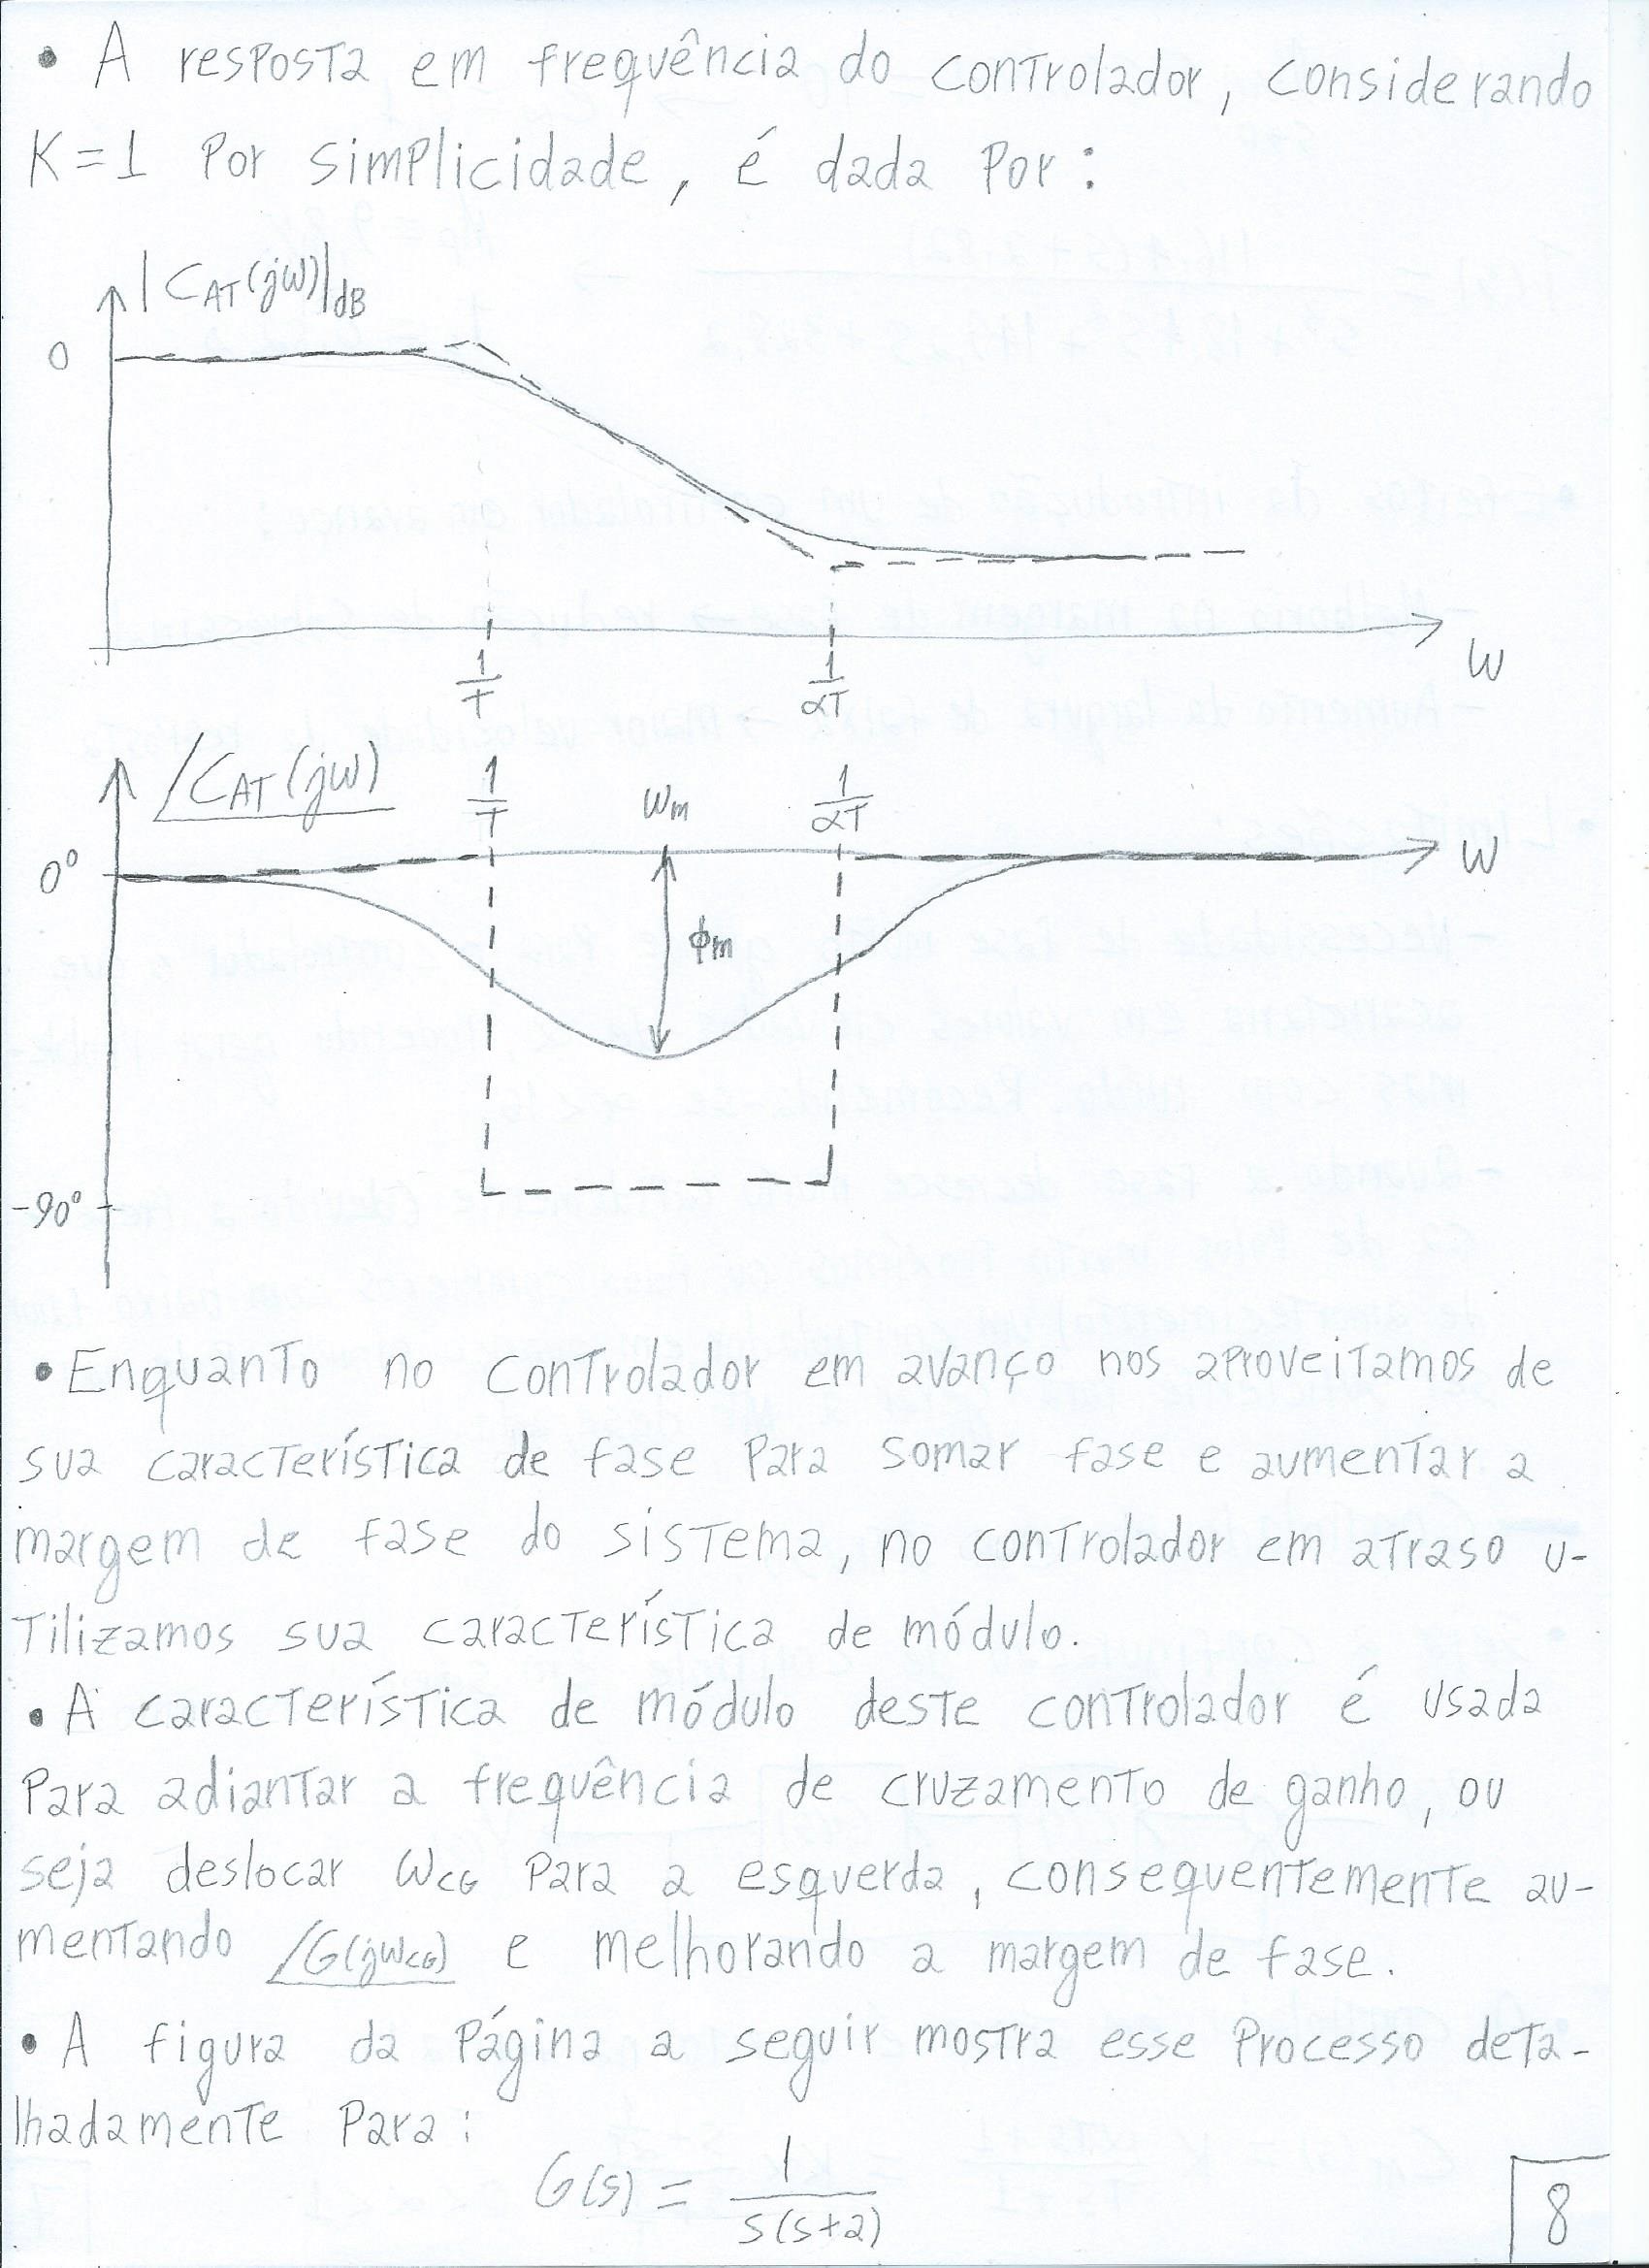 • A resposta em frequência do controlador, considerando
K=1 por simplicidade, é dada por:
|C_AT(jω)|_dB
0
1/T
1/αT
ω
/C_AT(jω)
1/T
ω_m
1/αT
0°
ω
ϕ_m
-90°
• Enquanto no controlador em avanço nos aproveitamos de
sua característica de fase para somar fase e aumentar a
margem de fase do sistema, no controlador em atraso u-
tilizamos sua característica de módulo.
• A característica de módulo deste controlador é usada
para adiantar a frequência de cruzamento de ganho, ou
seja deslocar ω_CG para a esquerda, consequentemente au-
mentando /G(jω_CG) e melhorando a margem de fase.
• A figura da página a seguir mostra esse processo deta-
lhadamente para:
G(s) = 1/(s(s+2))
8